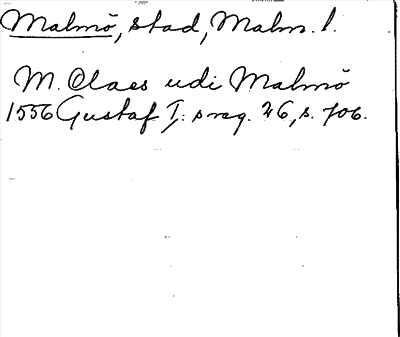 Malmö, stad, Malm. l.
M. Claes udi Malmö
1556 Gustaf I: s reg. 26, s. 706.